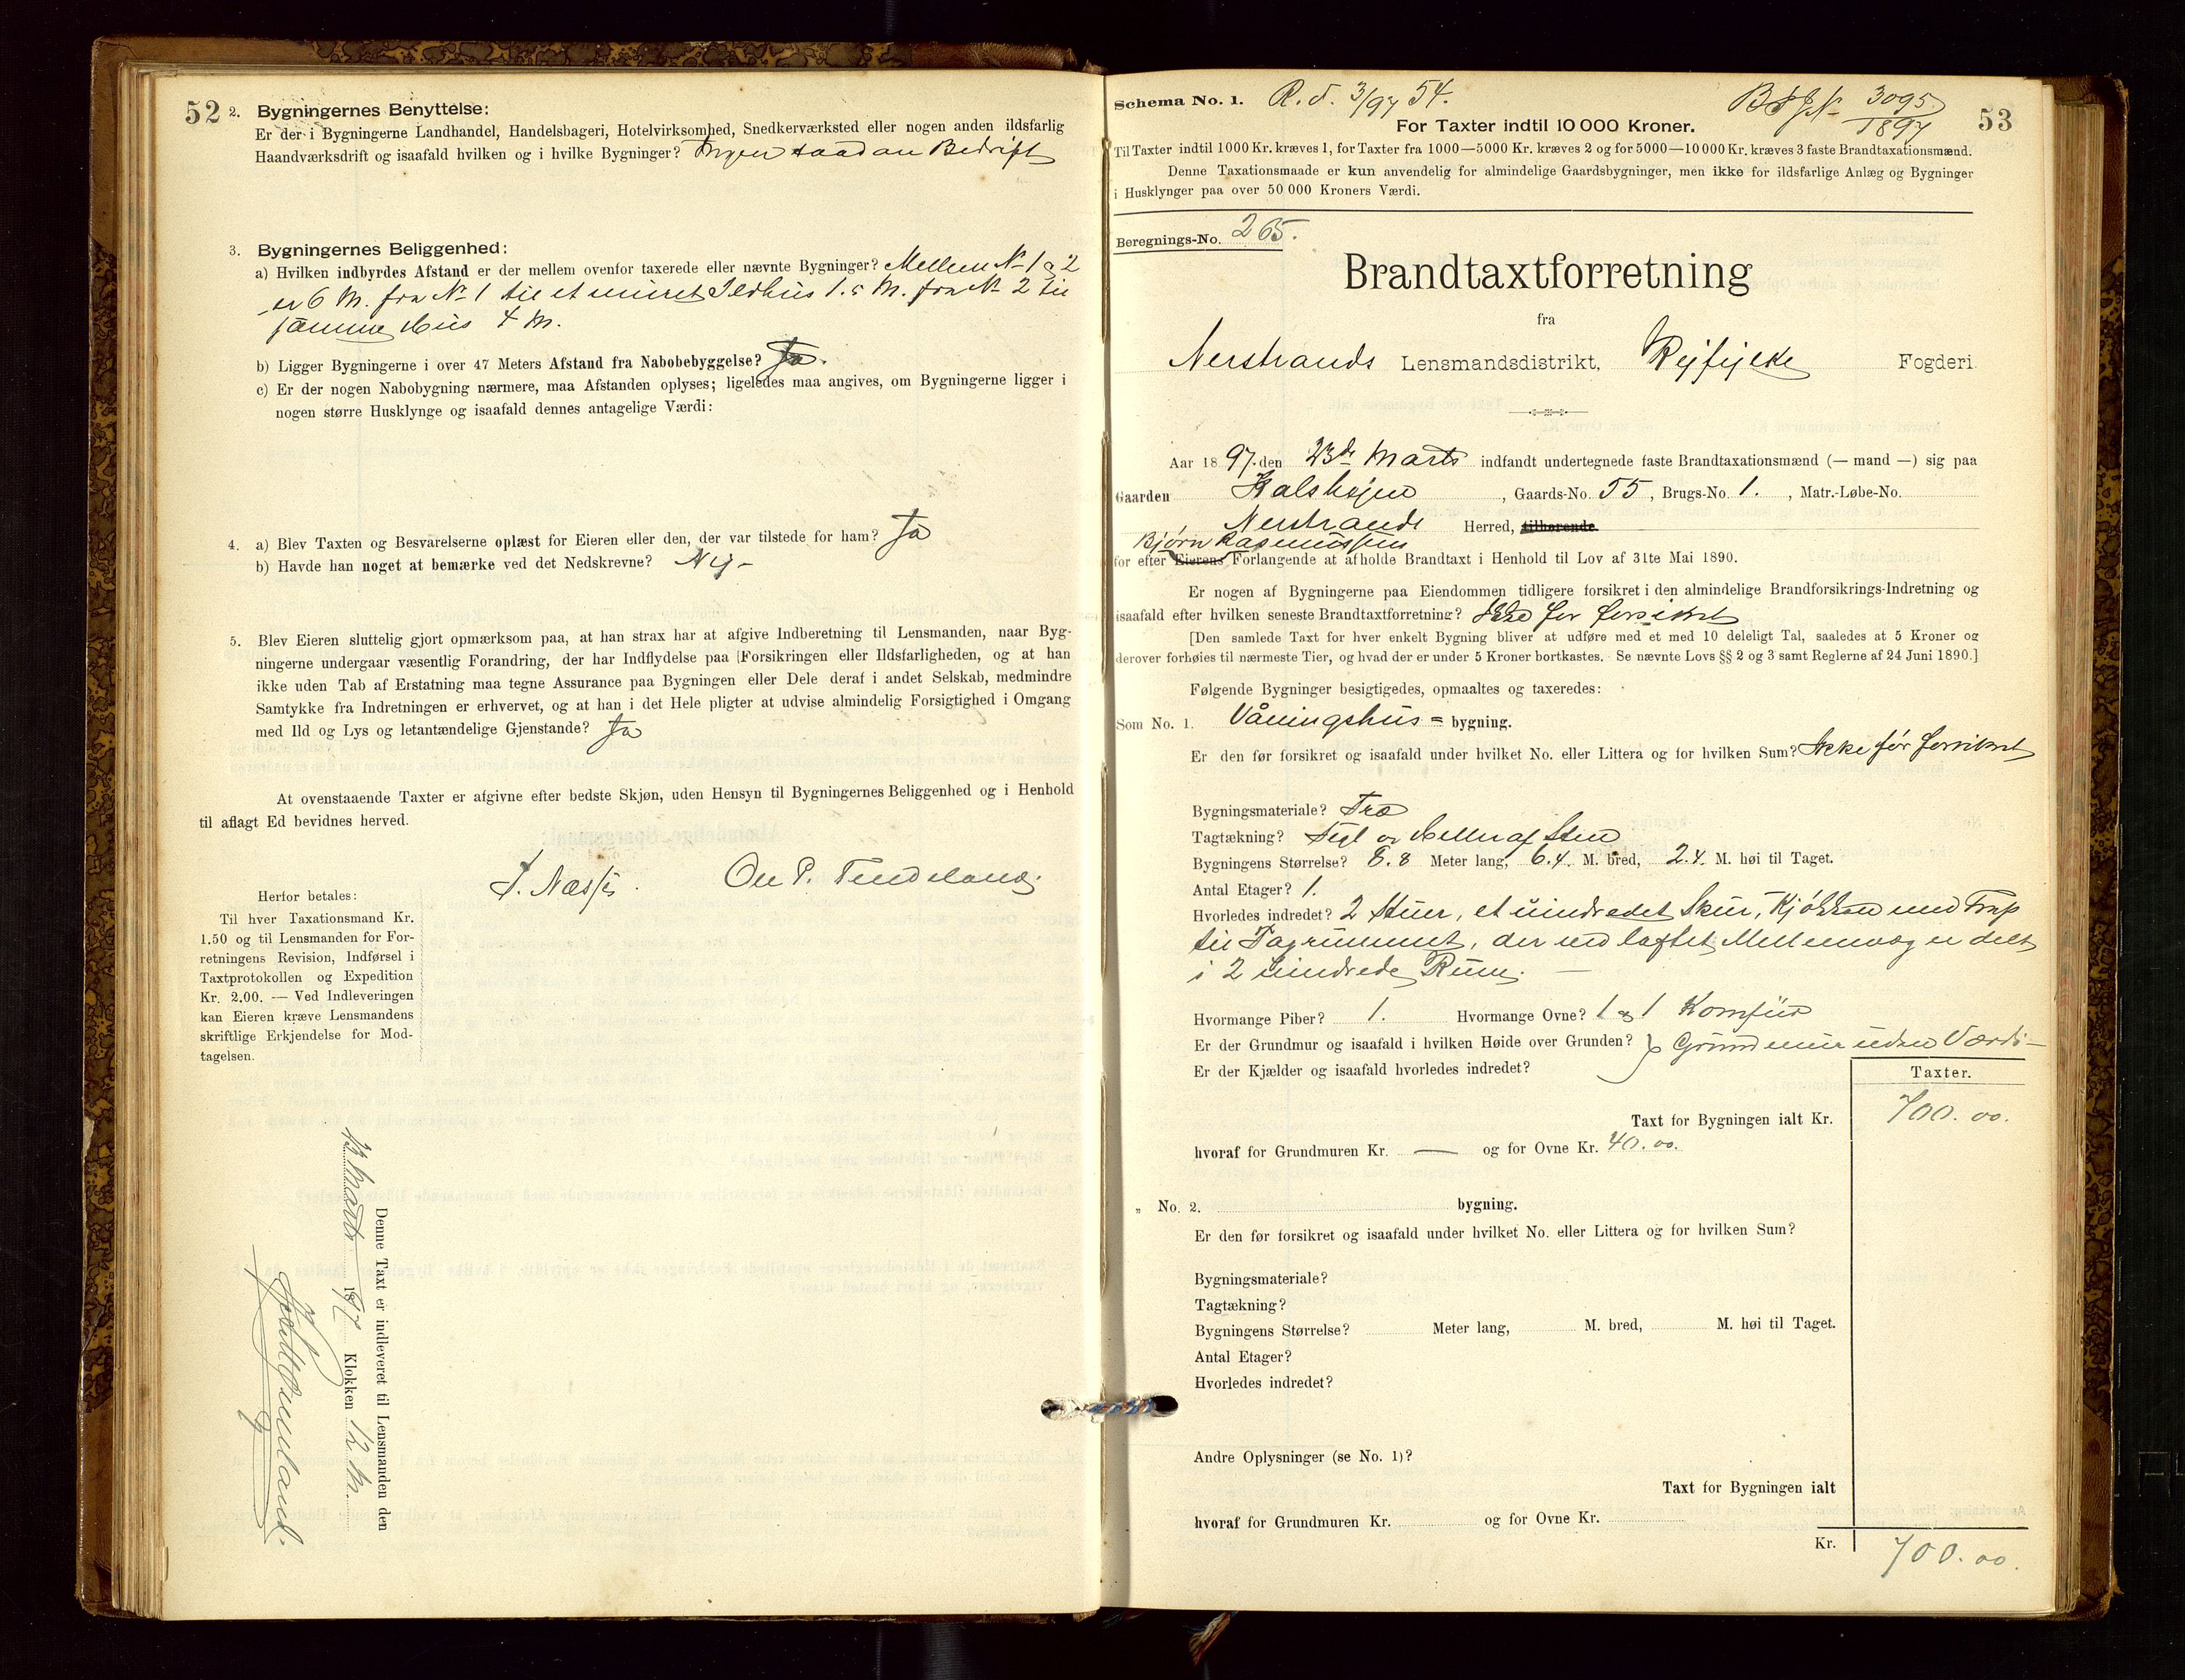 52
2. Bygningernes Benyttelse:
Er der i Bygningerne Landhandel, Handelsbageri, Hotelvirksomhed, Snedkerværksted eller nogen anden ildsfarlig
Haandværksdrift og isaafald hvilken og i hvilke Bygninger? Ingen saadan Bedrift
3. Bygningernes Beliggenhed:
a) Hvilken indbyrdes Afstand er der mellem ovenfor taxerede eller nævnte Bygninger? Mellem No 1 og 2
er 6 M. fra No 1 til et muret Ildhus 1.5 M. fra No 2 til
samme Hus 4 M.
b) Ligger Bygningerne i over 47 Meters Afstand fra Nabobebyggelse? Ja.
c) Er der nogen Nabobygning nærmere, maa Afstanden oplyses; ligeledes maa angives, om Bygningerne ligger i
nogen større Husklynge og isaafald dennes antagelige Værdi:
4. a) Blev Taxten og Besvarelserne oplæst for Eieren eller den, der var tilstede for ham? Ja
b) Havde han noget at bemærke ved det Nedskrevne? Nej-
5. Blev Eieren sluttelig gjort opmærksom paa, at han strax har at afgive Indberetning til Lensmanden, naar Byg-
ningerne undergaar væsentlig Forandring, der har Indflydelse paa Forsikringen eller Ildsfarligheden, og at han
ikke uden Tab af Erstatning maa tegne Assurance paa Bygningen eller Dele deraf i andet Selskab, medmindre
Samtykke fra Indretningen er erhvervet, og at han i det Hele pligter at udvise almindelig Forsigtighed i Omgang
med Ild og Lys og letantændelige Gjenstande? Ja
At ovenstaaende Taxter er afgivne efter bedste Skjøn, uden Hensyn til Bygningernes Beliggenhed og i Henhold
til aflagt Ed bevidnes herved.
Ole P.
Herfor betales:
Til hver Taxationsmand Kr.
1.50 og til Lensmanden for For-
retningens Revision, Indførsel i
Taxtprotokollen og Expedition
Kr. 2.00. — Ved Indleveringen
kan Eieren kræve Lensmandens
skriftlige Erkjendelse for Mod-
tagelsen.
Denne Taxt er indleveret til Lensmanden den
12 Marts 1897 Klokken 12 M.
Schema No. 1. R. d. 3/97 54. 3095/1897
53
For Taxter indtil 10 000 Kroner.
Til Taxter indtil 1000 Kr. kræves 1, for Taxter fra 1000—5000 Kr. kræves 2 og for 5000—10 000 Kr. kræves 3 faste Brandtaxationsmænd.
Denne Taxationsmaade er kun anvendelig for almindelige Gaardsbygninger, men ikke for ildsfarlige Anlæg og Bygninger
i Husklynger paa over 50 000 Kroners Værdi.
Beregnings-No. 265.
Brandtaxtforretning
fra
Nerstrands Lensmandsdistrikt, Ryfylke Fogderi
Aar 1897 den 23de Marts indfandt undertegnede faste Brandtaxationsmænd (— mand —) sig paa
Gaarden , Gaards-No. 55, Brugs-No. 1. , Matr.-Løbe-No.
Nerstrands Herred, tilhørende
Bjørn Rasmussens
for efter Eierens Forlangende at afholde Brandtaxt i Henhold til Lov af 31te Mai 1890.
Er nogen af Bygningerne paa Eiendommen tidligere forsikret i den almindelige Brandforsikrings-Indretning og
isaafald efter hvilken seneste Brandtaxtforretning? Ikke før forsikret
[Den samlede Taxt for hver enkelt Bygning bliver at udføre med et med 10 deleligt Tal, saaledes at 5 Kroner og
derover forhøies til nærmeste Tier, og hvad der er under 5 Kroner bortkastes. Se nævnte Lovs §§ 2 og 3 samt Reglerne af 24 Juni 1890.]
Følgende Bygninger besigtigedes, opmaaltes og taxeredes:
Som No. 1. Våningshus = bygning.
Er den før forsikret og isaafald under hvilket No. eller Littera og for hvilken Sum? Ikke før forsikret
Bygningsmateriale? Træ
Tagtækning? Tegl og Heller af Sten
Bygningens Størrelse? 8.8 Meter lang, 6.4. M. bred, 2.4. M. høi til Taget.
Antal Etager? 1.
Hvorledes indredet? 2 Stuer, et uindredet Skur, Kjøkken med Trap
til Tagrummet, der ved loftet Mellemvæg er delt
i 2 uindrede Rum. —
Hvormange Piber? 1. Hvormange Ovne? 1 og 1 Komfur
Er der Grundmur og isaafald i hvilken Høide over Grunden? } Grundmur uden Værdi —
Er der Kjælder og isaafald hvorledes indredet?
Taxter.
Taxt for Bygningen ialt Kr. 700.00.
hvoraf for Grundmuren Kr. — og for Ovne Kr. 40.00.
„ No. 2. bygning.
Er den før forsikret og isaafald under hvilket No. eller Littera og for hvilken Sum?
Bygningsmateriale?
Tagtækning?
Bygningens Størrelse? Meter lang, M. bred, M. høi til Taget.
Antal Etager?
Hvorledes indredet?
Andre Oplysninger (se No. 1)?
Taxt for Bygningen ialt
hvoraf for Grundmuren Kr. og for Ovne Kr.
Kr. 700.00.